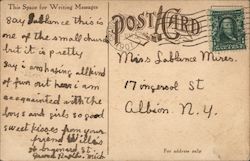 This Space for Writing Messages
POST CARD
say Lablence this is
one of the small church
but it is pretty
say i am having all kind
of fun out hear i am
acquainted with the
boys and girls so good
sweet kisses from your
friend Willis
Grand Rapids. Mich.
Miss Lablence Mires.
17 Ingersol st
Albion. N. Y.
For address only